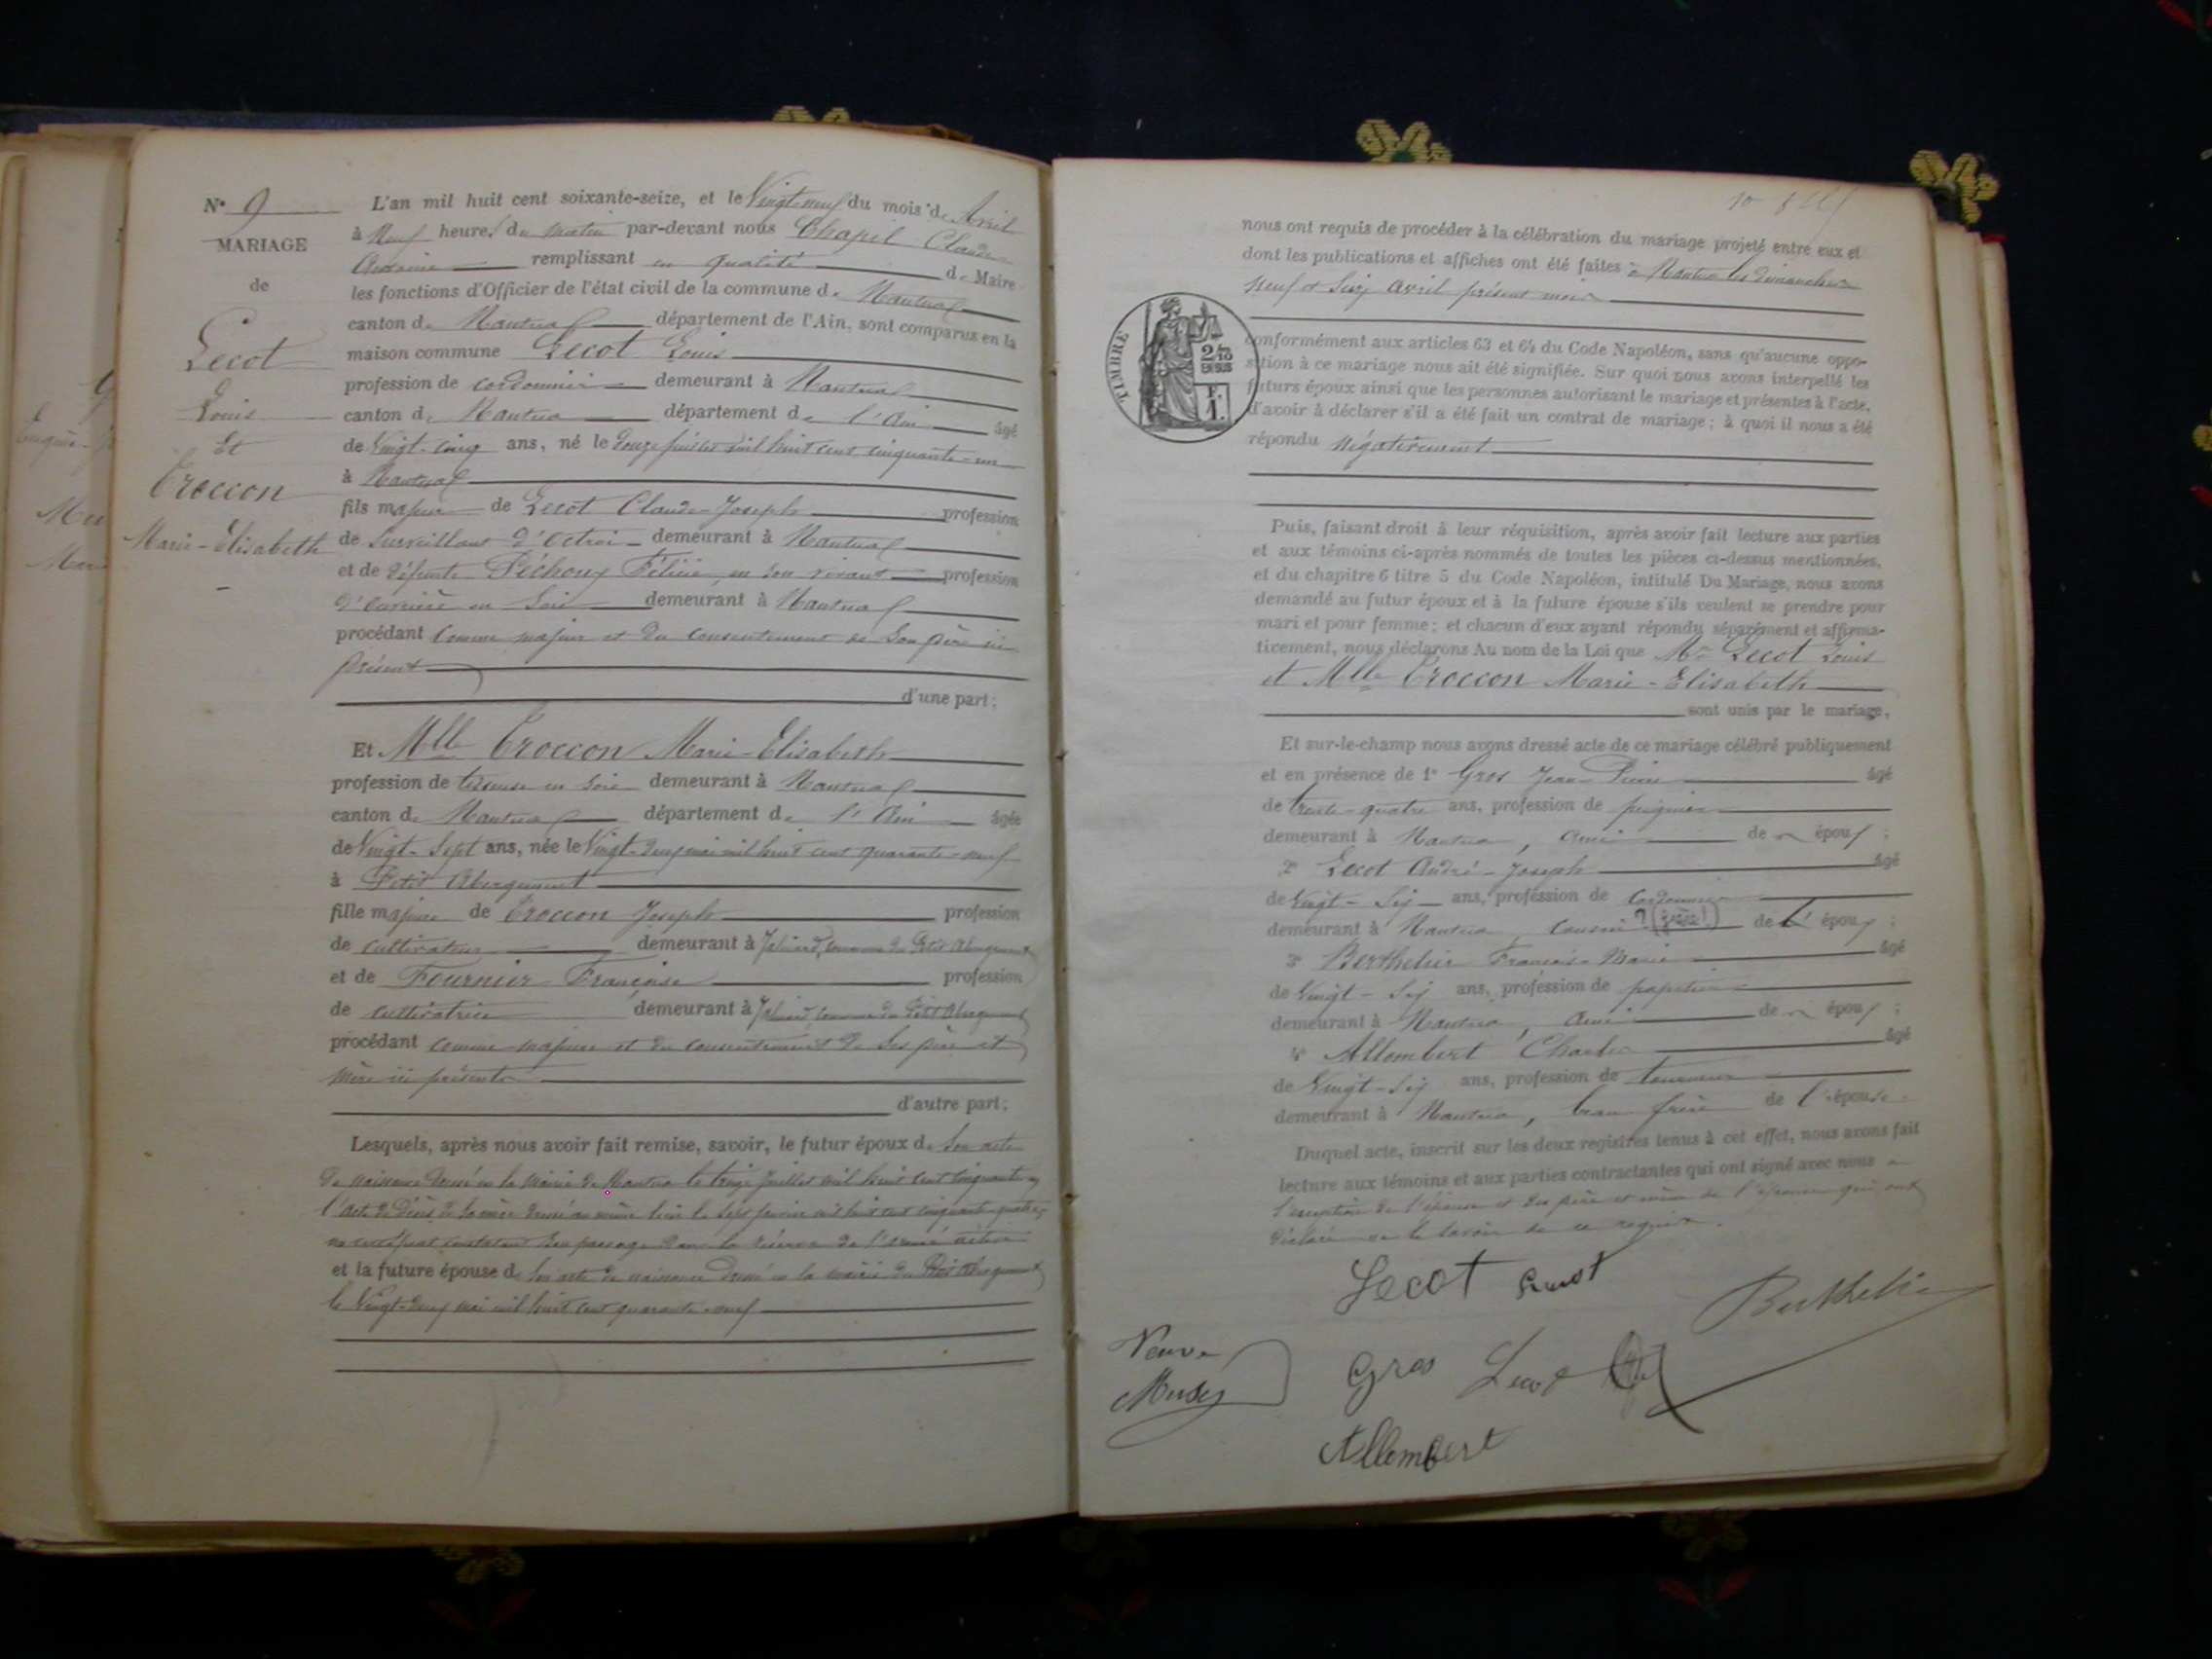 N° 9
MARIAGE
de
Lecot
Louis
Et
Troccon
Marie-Elisabeth
L'an mil huit cent soixante-seize, et le Vingt-neuf du mois de Avril
à Neuf heures du matin par-devant nous Chapel Claude
remplissant en qualité de Maire
les fonctions d'Officier de l'état civil de la commune de Nantua
canton de Nantua département de l'Ain, sont comparus en la
maison commune Lecot Louis
profession de cordonnier demeurant à Nantua
canton de Nantua département de l'Ain âgé
de Vingt-cinq ans, né le douze juillet mil huit cent cinquante-un
à Nantua
fils majeur de Lecot Claude-Joseph profession
de Surveillant d'Octroi demeurant à Nantua
et de défunte Péchoux Félicie, en son vivant profession
d'ouvrière en Soie demeurant à Nantua
procédant comme majeur et du consentement de Son père ici
présent
d'une part;
Et Mlle Troccon Marie-Elisabeth
profession de tisseuse en soie demeurant à Nantua
canton de Nantua département de l'Ain âgée
de Vingt-Sept ans, née le Vingt-deux mai mil huit cent quarante-neuf
à Petit Abergement
fille majeure de Troccon Joseph profession
de cultivateur demeurant à commune du Petit Abergement
et de Fournier Françoise profession
de cultivatrice demeurant à commune du Petit Abergement
procédant comme majeure et du consentement de Ses père et
Mère ici présents
d'autre part;
Lesquels, après nous avoir fait remise, savoir, le futur époux de Son acte
de naissance dressé en la Mairie de Nantua le treize juillet mil huit cent cinquante-un
l'acte de décès de Sa mère dressé au même lieu le Sept février mil huit cent cinquante-quatre,
un certificat constatant Son passage dans la réserve de l'armée active
et la future épouse de Son acte de naissance dressé en la mairie du Petit Abergement
le Vingt-deux mai mil huit cent quarante-neuf
nous ont requis de procéder à la célébration du mariage projeté entre eux et
dont les publications et affiches ont été faites à Nantua les dimanches
Neuf et Seize Avril présent mois
TIMBRE
2/10
EN SUS
conformément aux articles 63 et 64 du Code Napoléon, sans qu'aucune oppo-
sition à ce mariage nous ait été signifiée. Sur quoi nous avons interpellé les
futurs époux ainsi que les personnes autorisant le mariage et présentes à l'acte,
d'avoir à déclarer s'il a été fait un contrat de mariage; à quoi il nous a été
répondu Négativement
Puis, faisant droit à leur réquisition, après avoir fait lecture aux parties
et aux témoins ci-après nommés de toutes les pièces ci-dessus mentionnées,
et du chapitre 6 titre 5 du Code Napoléon, intitulé Du Mariage, nous avons
demandé au futur époux et à la future épouse s'ils veulent se prendre pour
mari et pour femme; et chacun d'eux ayant répondu séparément et affirma-
tivement, nous déclarons Au nom de la Loi que Mr Lecot Louis
et Mlle Troccon Marie-Elisabeth
sont unis par le mariage,
Et sur-le-champ nous avons dressé acte de ce mariage célébré publiquement
et en présence de 1° Gros Jean-Pierre âgé
de trente-quatre ans, profession de peignier
demeurant à Nantua, ami de époux;
2° Lecot André-Joseph âgé
de Vingt-Six ans, profession de Cordonnier
demeurant à Nantua, Cousin ? (frère!) de l'époux;
3° Berthelier François-Marie âgé
de Vingt-Six ans, profession de papetier
demeurant à Nantua, ami de époux;
4° Allombert Charles âgé
de Vingt-Six ans, profession de tourneur
demeurant à Nantua, beau frère de l'épouse
Duquel acte, inscrit sur les deux registres tenus à cet effet, nous avons fait
lecture aux témoins et aux parties contractantes qui ont signé avec nous à
l'exception de l'épouse et des père et mère de l'épouse qui ont
déclaré ne le savoir de ce requis.
Lecot
Berthelier
Veuve
Gros Lecot
Allembert